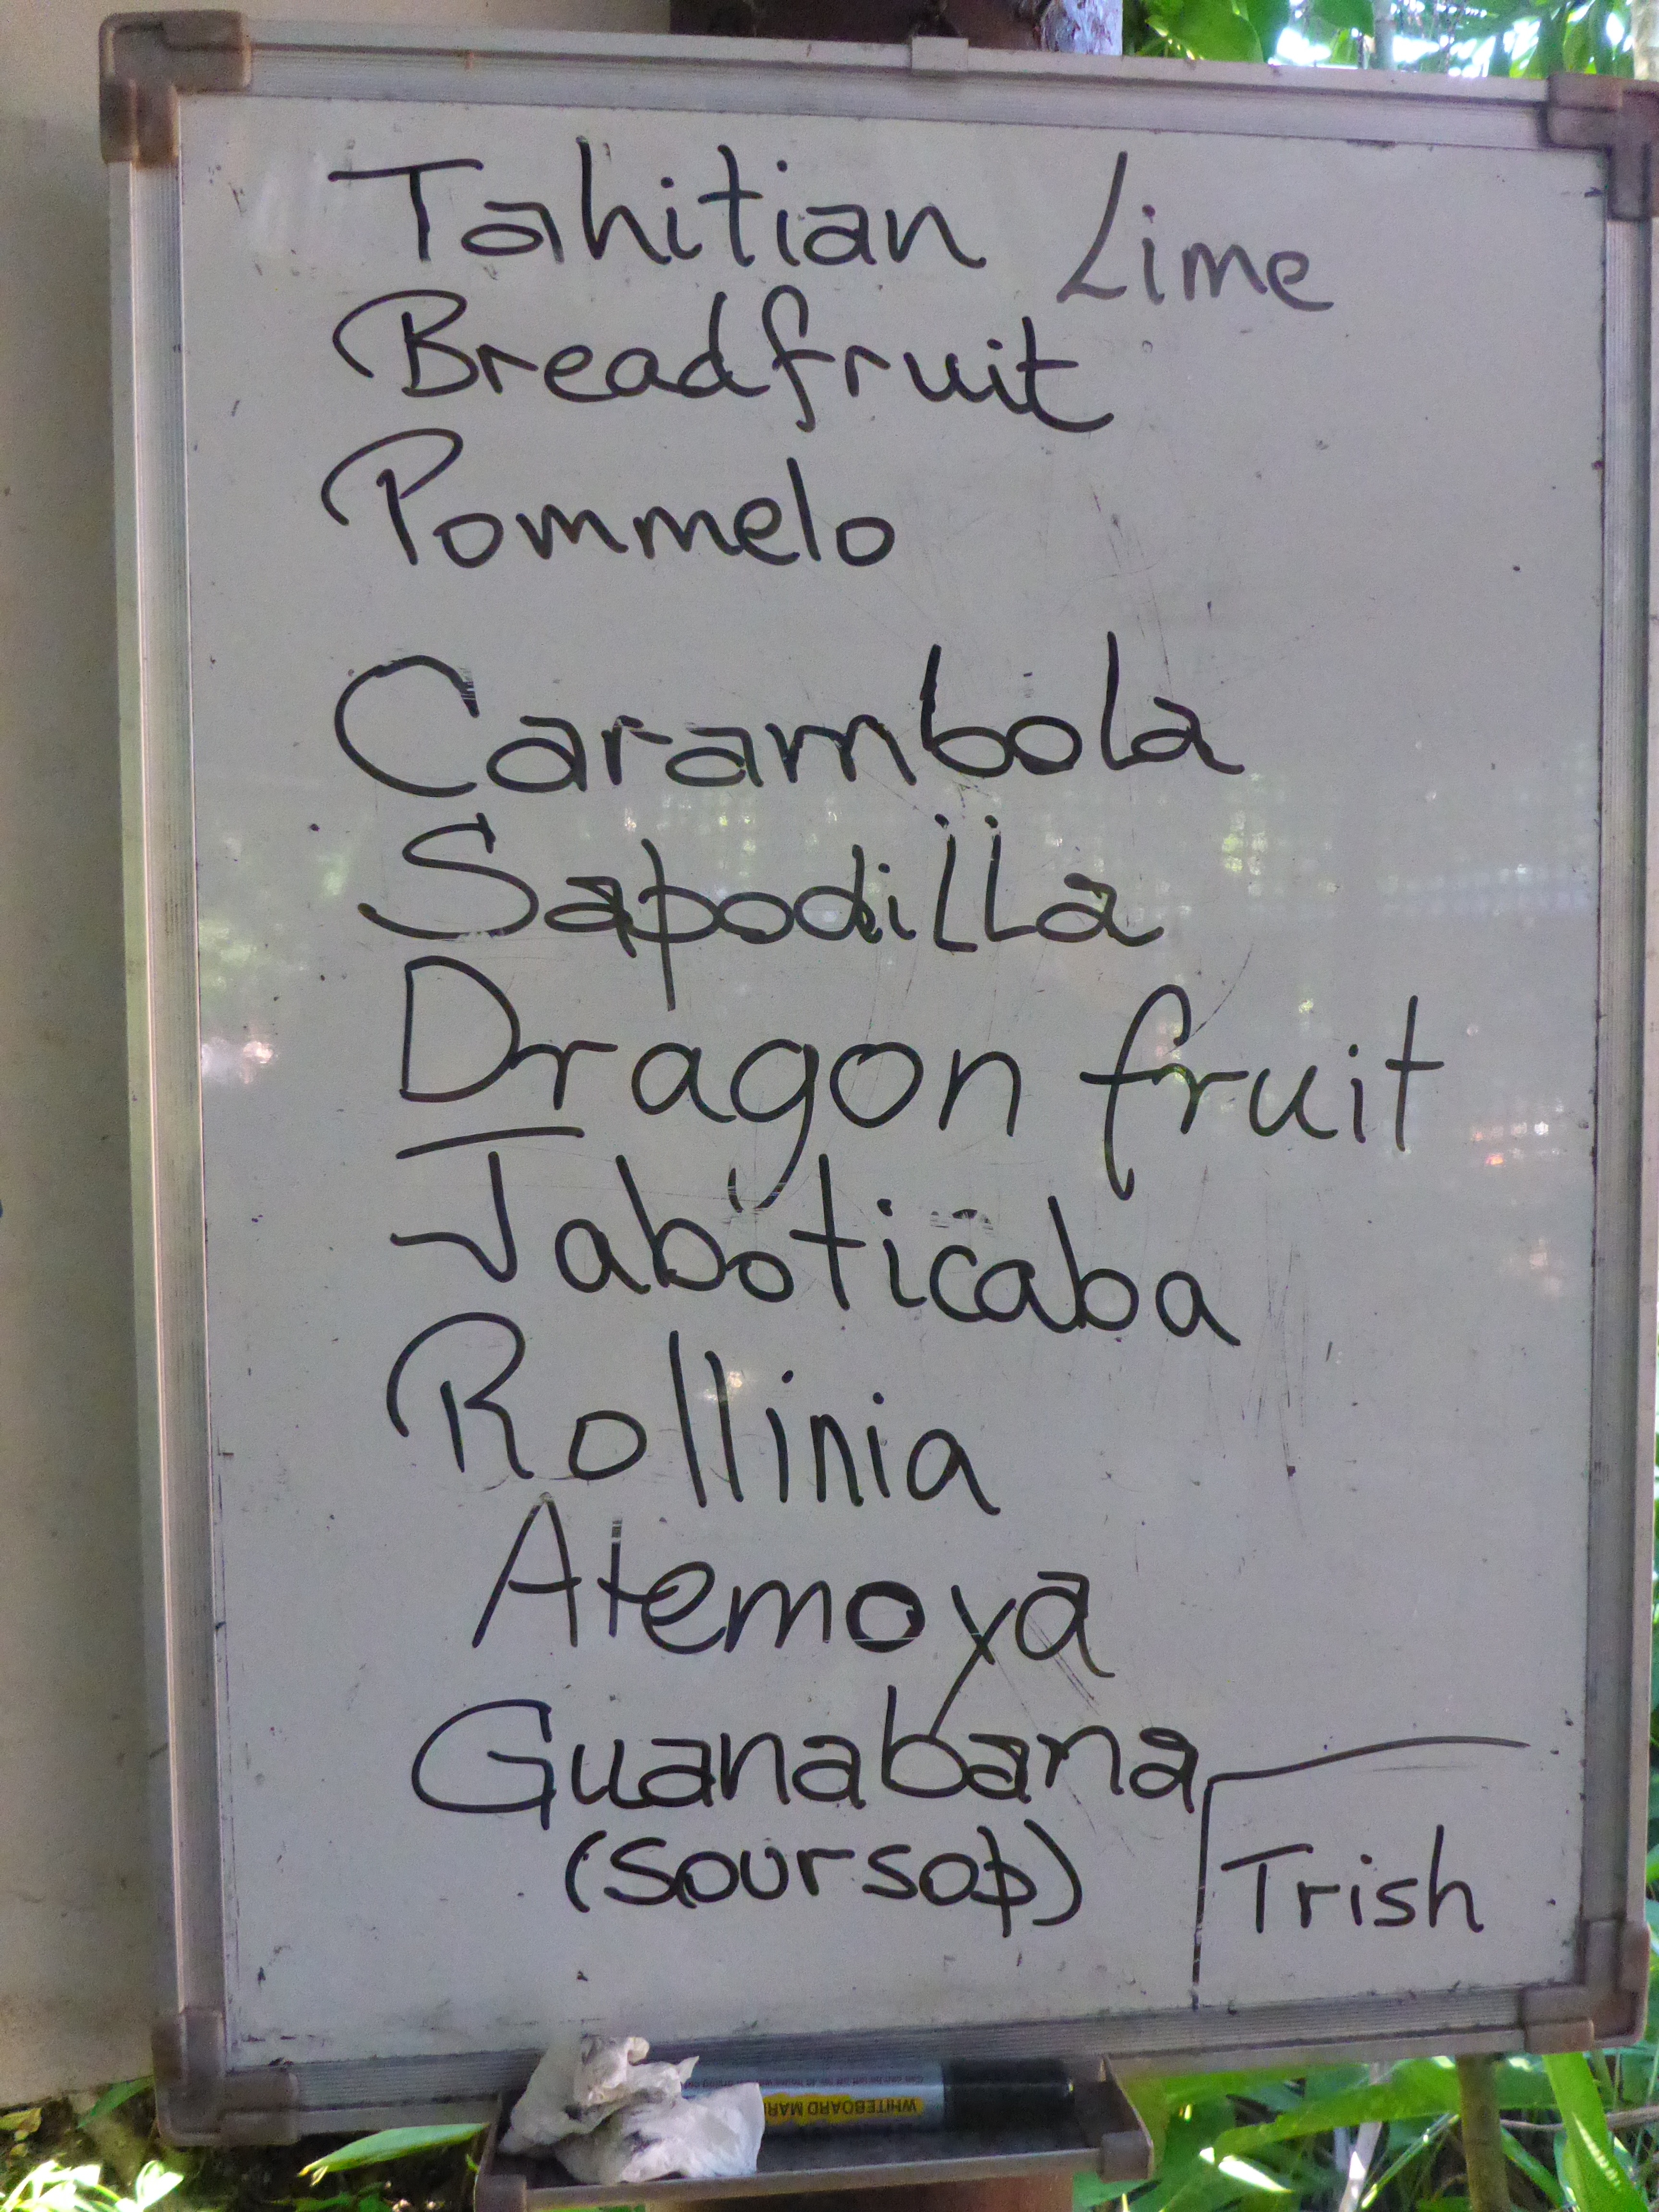 Tahitian Lime
Breadfruit
Pommelo
Carambola
Sapodilla
Dragon fruit
Jaboticaba
Rollinia
Atemoya
Guanabana
(Soursop)
Trish
WHITEBOARD MAR